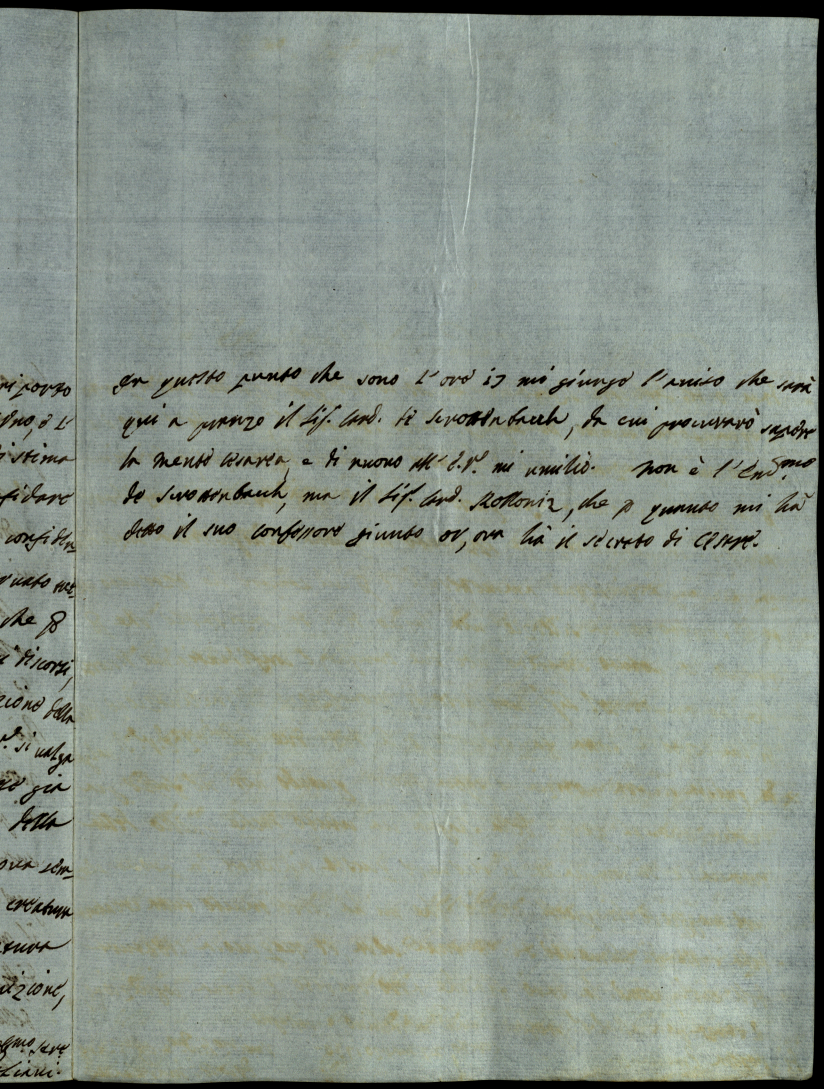 riporto
è l'
issima
fidare
confiden=
che p
discorsi,
zione della
si valga
già
della
sem=
creatura
izione,
In questo punto che sono l'ore 17 mi giunge l'aviso che sarà
qui a pranzo il Sig.r Card. di Scrottenbach, da cui procurarò sapere
la mente cesarea, e di nuovo all' E. V. mi umilio. Non è l'Em.mo
de Scrottenbach, ma il Sig.r Card. Kolloniz, che p quanto mi hà
detto il suo confessore giunto or, ora hà il secreto di Cesare.